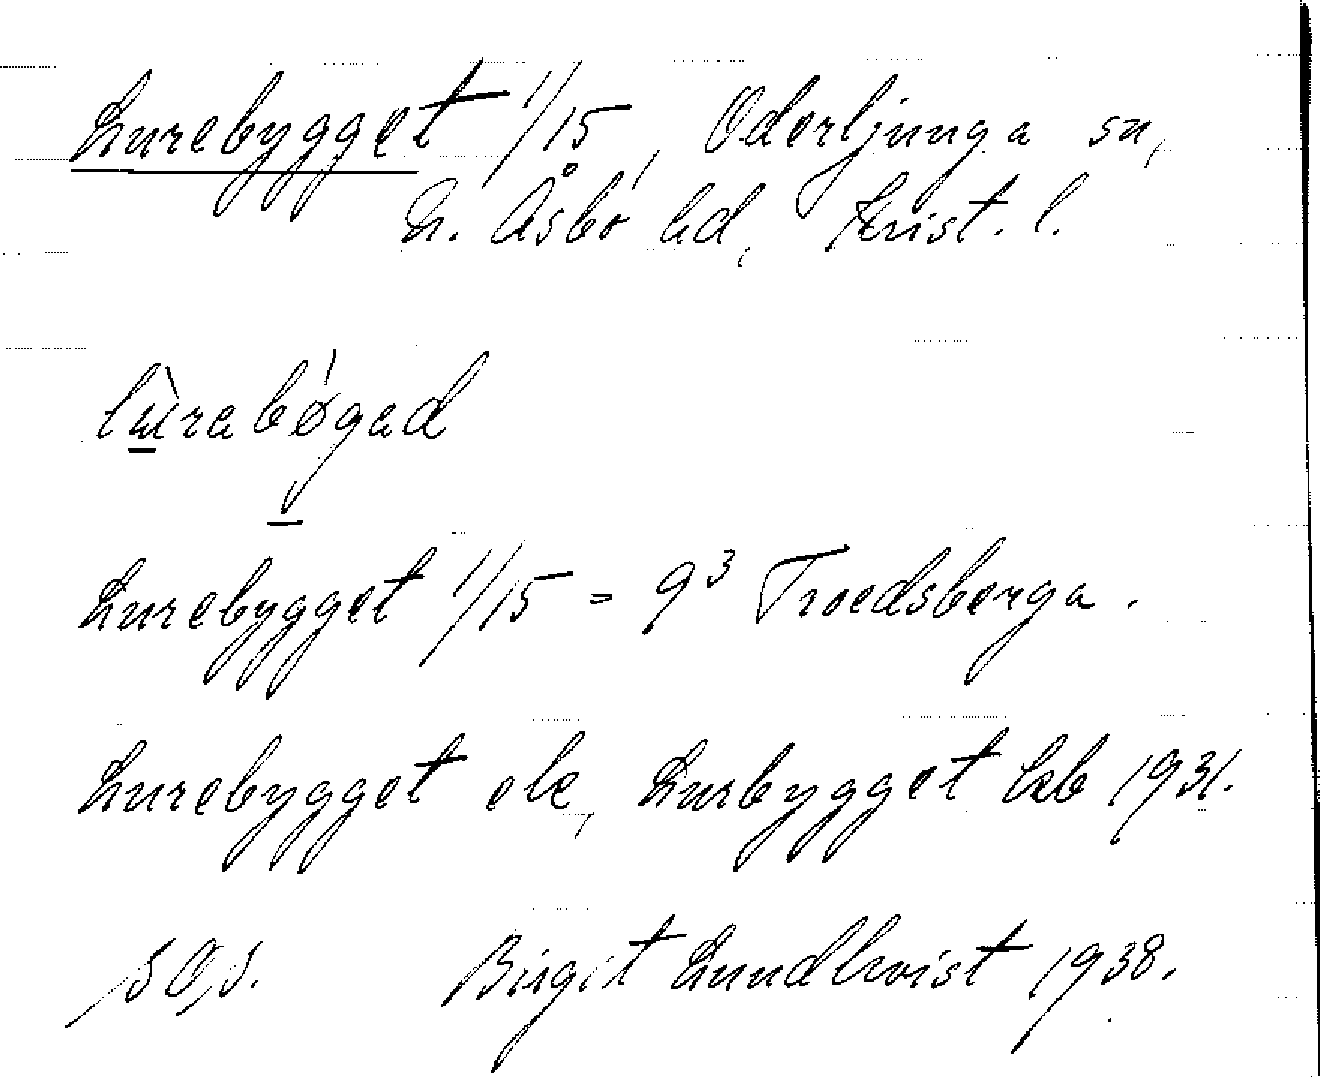 Lurebygget 1/15, Oderljunga sn,
N. Åsbo hd, Krist. l.
lùrabø̀gad
Lurebygget 1/15 = 9³ Troedsberga.
Lurebygget elc, Lurbygget kb 1931.
Birgit Lundkvist 1938.